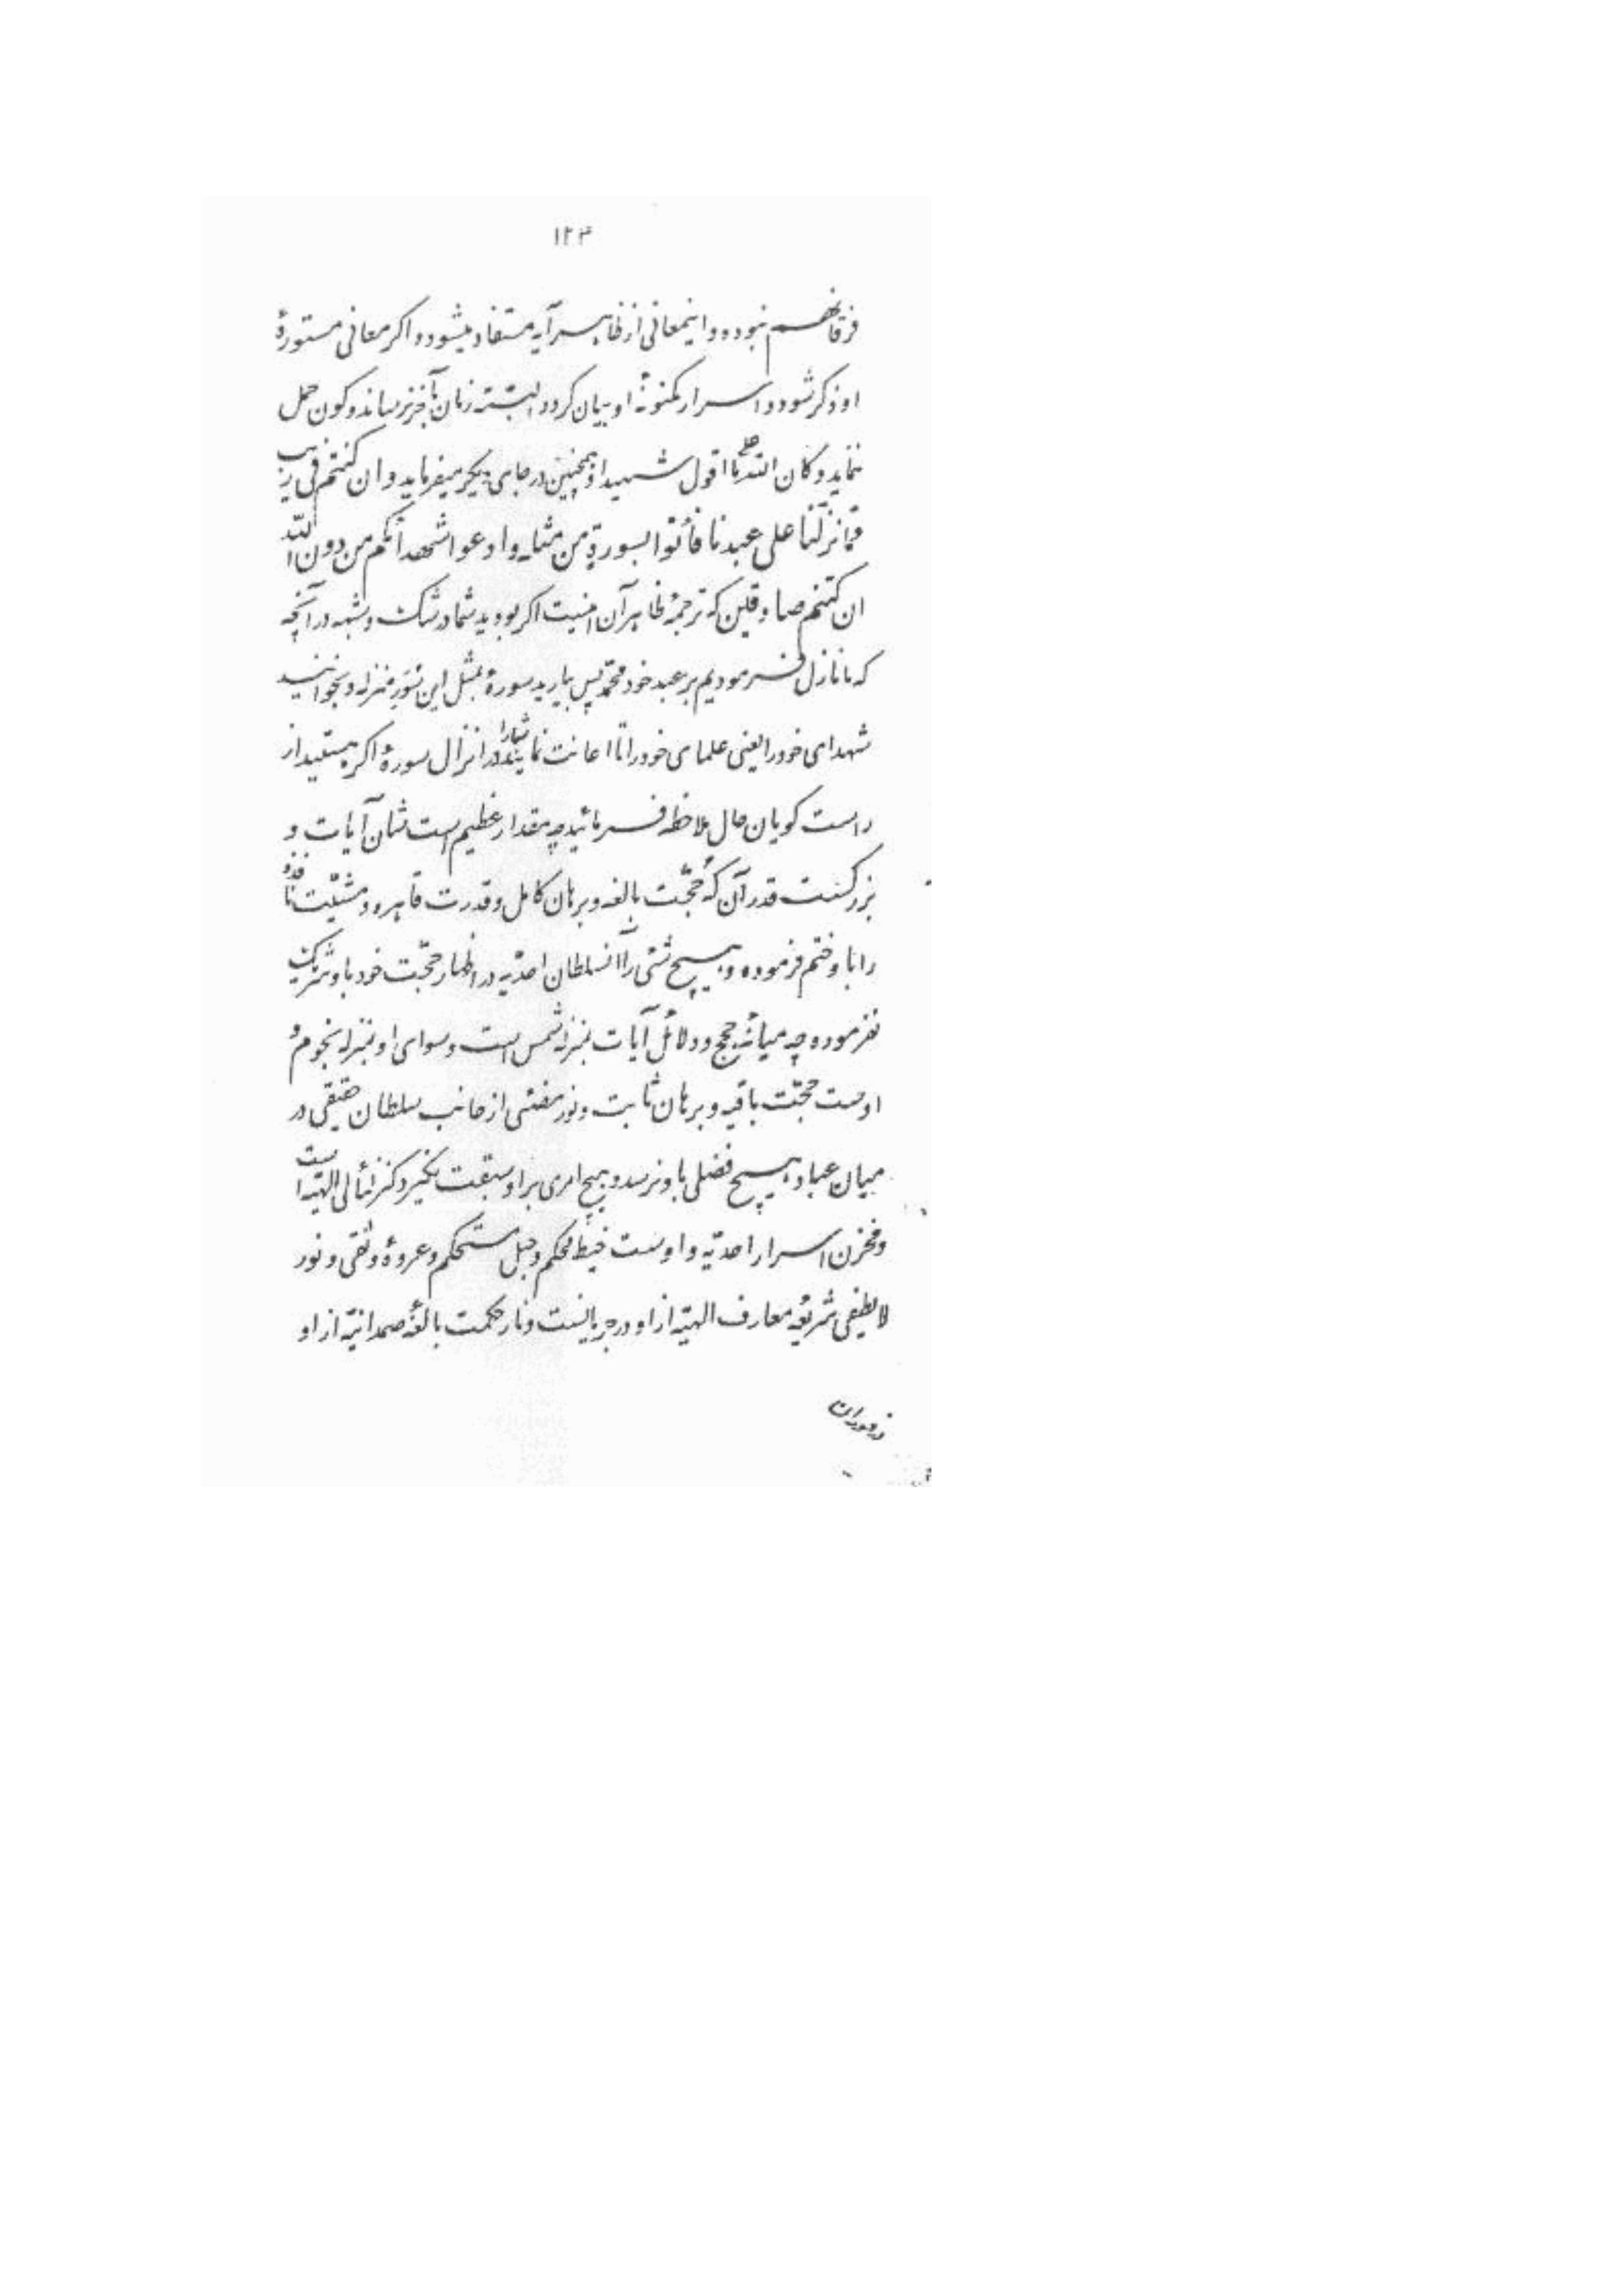 ١٢٣
فرقانهم نبوده و اینمعانی از ظاهر آیه مستفاد میشود و اکر معانی مستورهٔ
او ذکر شود و اسرار مکنونهٔ او بیان کردد البتّه زمان بآخر نرساند و کون حمل
ننماید و کان اللّه علی ما اقول شهیدا و همچنین در جای دیکر میفرماید و ان کنتم فی ریب
ممّا نزّلنا علی عبدنا فأتوا بسورة من مثله و ادعوا شهدائکم من دون اللّه
ان کنتم صادقین که ترجمهٔ ظاهر آن اینست اکر بودید شما در شک و شبهه در آنچه
که ما نازل فرمودیم بر عبد خود محمّد پس بیارید سورهٔ بمثل این سور منزله و بخوانید
شهدای خود را یعنی علمای خود را تا اعانت نمایند شما را در انزال سورهٔ اکر هستید از
راست کویان حال ملاحظه فرمائید چه مقدار عظیم است شأن آیات و
بزرکست قدر آن که حجّت بالغه و برهان کامل و قدرت قاهره و مشیّت نافذه
را باو ختم فرموده و هیچ شئی را آنسلطان احدیّه در اظهار حجّت خود باو شریک
نفرموده چه میانهٔ حجج و دلائل آیات بمنزله شمس است و سوای او بمنزله نجوم و
اوست حجّت باقیه و برهان ثابت و نور مضئی از جانب سلطان حقیقی در
میان عباد هیچ فضلی باو نرسد و هیچ امری بر او سبقت نکیرد کنز لئالی الهیّه است
و مخزن اسرار احدیّه و اوست خیط محکم و حبل مستحکم و عروهٔ وثقی و نور
لایطفی شریعهٔ معارف الهیّه از او در جریانست و نار حکمت بالغهٔ صمدانیّه از او
در فوران